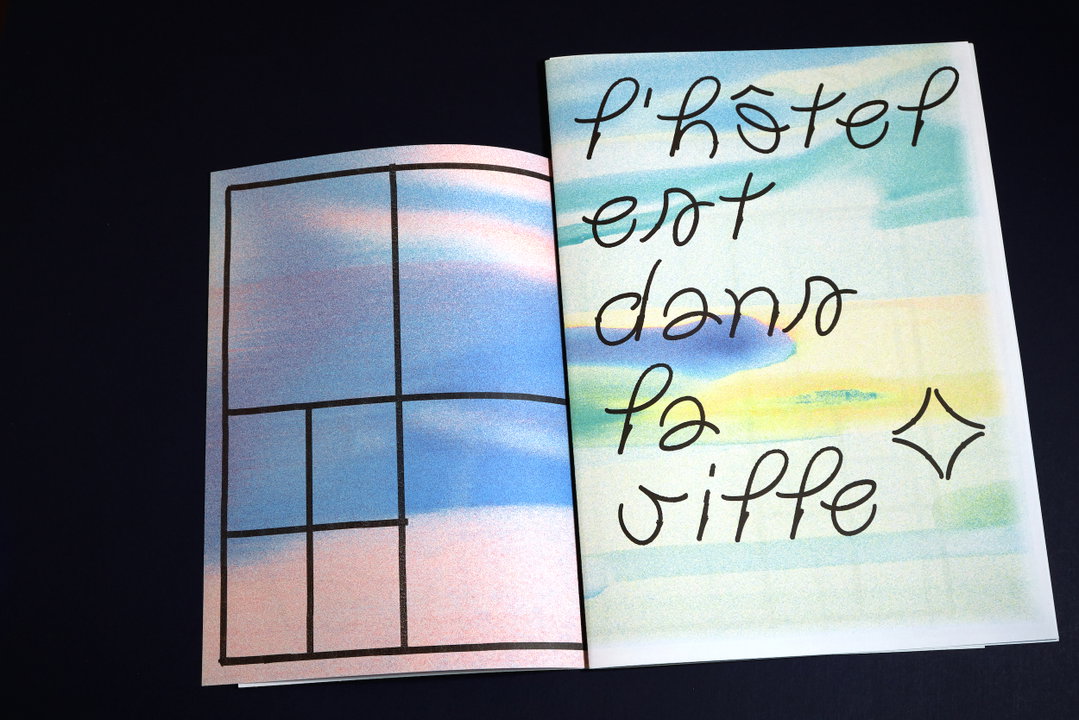 l'hôtel
est
dans
la
ville